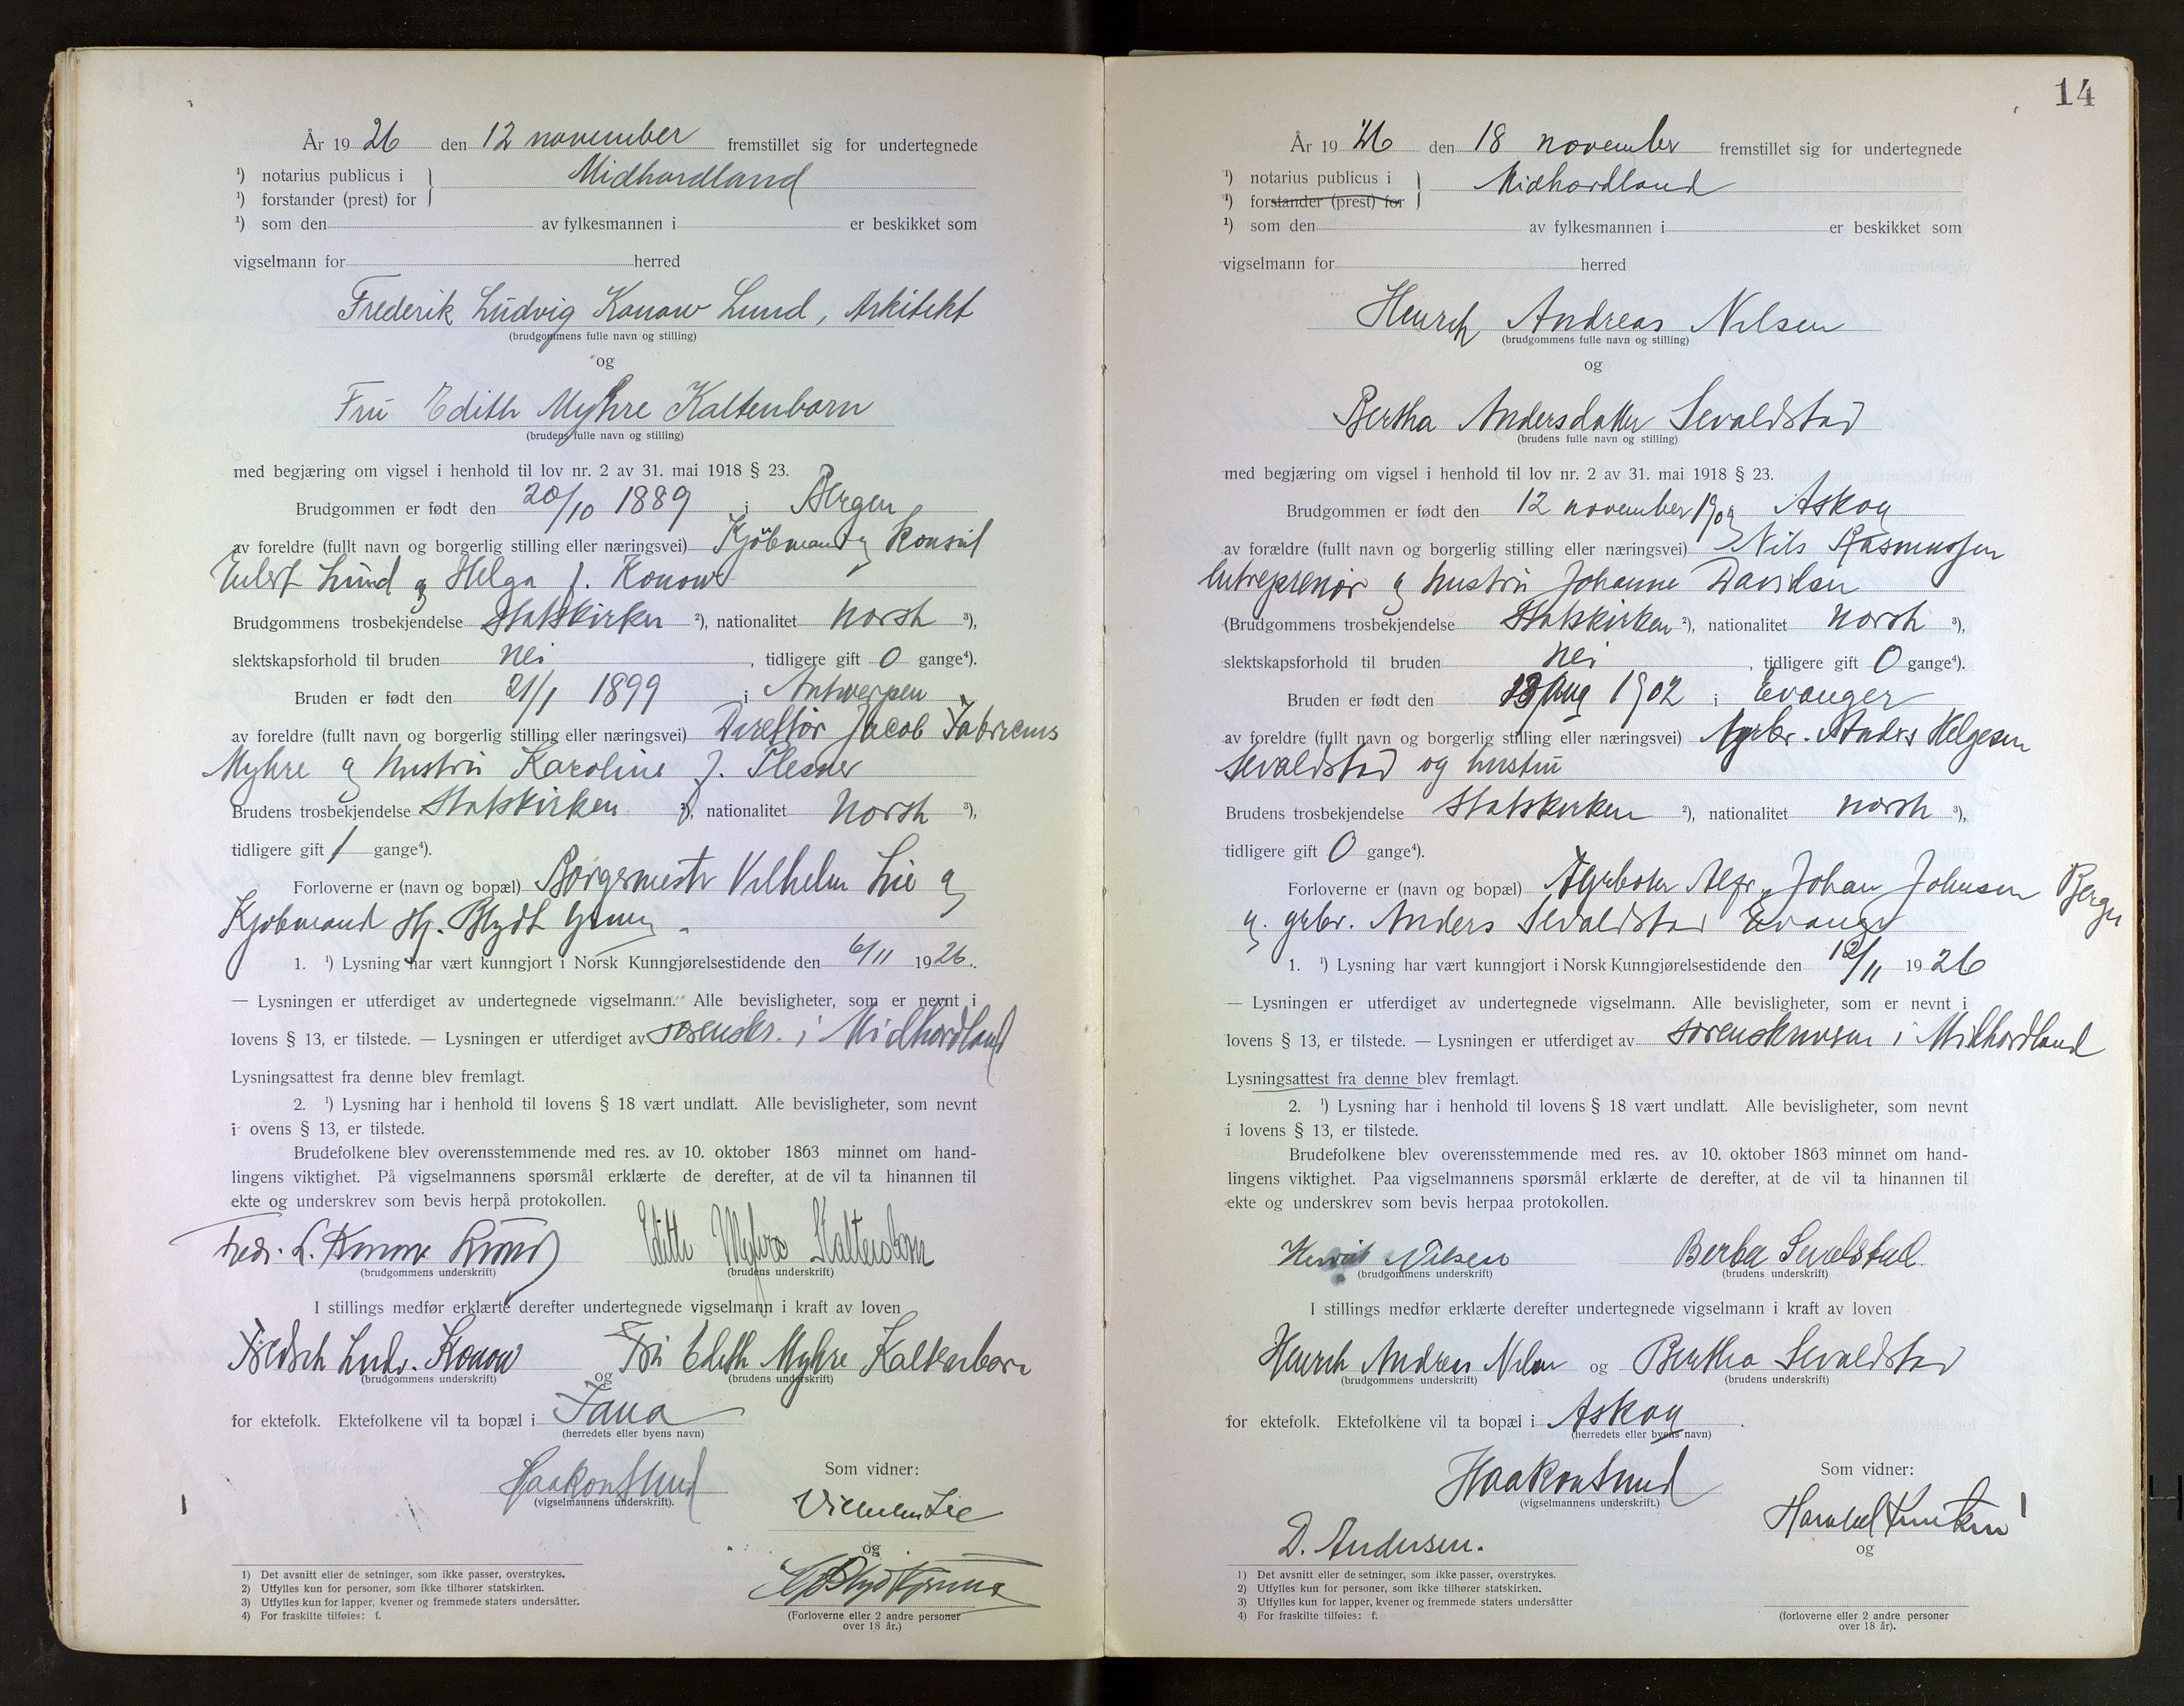 År 1926 den 12 november fremstillet sig for undertegnede
¹) notarius publicus i } Midhordland
¹) forstander (prest) for
¹) som den av fylkesmannen i er beskikket som
vigselmann for herred
Frederik Ludvig Konow Lund, Arkitekt
(brudgommens fulle navn og stilling)
og
Fru Edith Myhre Kaltenborn
(brudens fulle navn og stilling)
med begjæring om vigsel i henhold til lov nr. 2 av 31. mai 1918 § 23.
Brudgommen er født den 20/10 1889 i Bergen
av foreldre (fullt navn og borgerlig stilling eller næringsvei) Kjøbmand og Konsul
Eilert Lund og Helga f. Konow
Brudgommens trosbekjendelse Statskirken ²), nationalitet norsk ³),
slektskapsforhold til bruden nei , tidligere gift 0 gange⁴).
Bruden er født den 21/1 1899 i Antwerpen
av foreldre (fullt navn og borgerlig stilling eller næringsvei) Direktør Jacob Fabricius
Myhre og hustru Karoline f. Plesner
Brudens trosbekjendelse Statskirken ²), nationalitet norsk ³),
tidligere gift 1 gange⁴).
Forloverne er (navn og bopæl) Borgermester Vilhelm Lie og
Kjøbmand Hj. Blydt
1. ¹) Lysning har vært kunngjort i Norsk Kunngjørelsestidende den 6/11 1926.
— Lysningen er utferdiget av undertegnede vigselmann. Alle bevisligheter, som er nevnt i
lovens § 13, er tilstede. — Lysningen er utferdiget av sorenskr. i Midhordland
Lysningsattest fra denne blev fremlagt.
2. ¹) Lysning har i henhold til lovens § 18 vært undlatt. Alle bevisligheter, som nevnt
i ovens § 13, er tilstede.
Brudefolkene blev overensstemmende med res. av 10. oktober 1863 minnet om hand-
lingens viktighet. På vigselmannens spørsmål erklærte de derefter, at de vil ta hinannen til
ekte og underskrev som bevis herpå protokollen.
Fredr. L. Konow Lund Edith Myhre Kaltenborn
(brudgommens underskrift) (brudens underskrift)
I stillings medfør erklærte derefter undertegnede vigselmann i kraft av loven
Fredrik Ludv. Konow og Fru Edith Myhre Kaltenborn
(brudgommens underskrift) (brudens underskrift)
for ektefolk. Ektefolkene vil ta bopæl i Fana
(herredets eller byens navn)
Haakon Lund
(vigselmannens underskrift).
Som vidner:
Vilhelm Lie
og
(Forloverne eller 2 andre personer
over 18 år.)
1) Det avsnitt eller de setninger, som ikke passer, overstrykes.
2) Utfylles kun for personer, som ikke tilhører statskirken.
3) Utfylles kun for lapper, kvener og fremmede staters undersåtter.
4) For fraskilte tilføies: f.
14
År 1926 den 18 november fremstillet sig for undertegnede
¹) notarius publicus i } Midhordland
¹) forstander (prest) for
¹) som den av fylkesmannen i er beskikket som
vigselmann for herred
Henrik Andreas Nilsen
(brudgommens fulle navn og stilling)
og
Bertha Andersdatter Sevaldstad
(brudens fulle navn og stilling)
med begjæring om vigsel i henhold til lov nr. 2 av 31. mai 1918 § 23.
Brudgommen er født den 12 november Askøy
av forældre (fullt navn og borgerlig stilling eller næringsvei) Nils Rasmussen
entreprenør og hustru Johanne Davidsen
(Brudgommens trosbekjendelse Statskirken ²), nationalitet norsk ³),
slektskapsforhold til bruden nei , tidligere gift 0 gange⁴).
Bruden er født den aug 1902 i Evanger
av foreldre (fullt navn og borgerlig stilling eller næringsvei) Anders Helgesen
Sevaldstad og hustru
Brudens trosbekjendelse Statskirken ²), nationalitet norsk ³),
tidligere gift 0 gange⁴).
Forloverne er (navn og bopæl) Johan Johnsen Bergen
og grbr. Anders Sevaldstad Evanger
1. ¹) Lysning har vært kunngjort i Norsk Kunngjørelsestidende den 12/11 1926
— Lysningen er utferdiget av undertegnede vigselmann. Alle bevisligheter, som er nevnt i
lovens § 13, er tilstede. — Lysningen er utferdiget av sorenskriveren i Midhordland
Lysningsattest fra denne blev fremlagt.
2. ¹) Lysning har i henhold til lovens § 18 vært undlatt. Alle bevisligheter, som nevnt
i lovens § 13, er tilstede.
Brudefolkene blev overensstemmende med res. av 10. oktober 1863 minnet om hand-
lingens viktighet. Paa vigselmannens spørsmål erklærte de derefter, at de vil ta hinannen til
ekte og underskrev som bevis herpaa protokollen.
Henrik Nilsen Berta Sevaldstad
(brudgommens underskrift) (brudens underskrift)
I stillings medfør erklærte derefter undertegnede vigselmann i kraft av loven
Henrik Andreas Nilsen og Bertha Sevaldstad
(brudgommens underskrift) (brudens underskrift)
for ektefolk. Ektefolkene vil ta bopæl i Askøy .
(herredets eller byens navn)
Haakon Lund
(vigselmannens underskrift.)
Som vidner:
og
D. Andersen.
(forloverne eller 2 andre personer
over 18 år).
1) Det avsnitt eller de setninger, som ikke passer, overstrykes.
2) Utfylles kun for personer, som ikke tilhører statskirken.
3) Utfylles kun for lapper, kvener og fremmede staters undersåtter
4) For fraskilte tilføies: f.